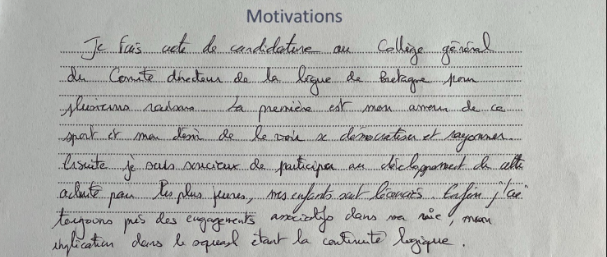 Motivations
Je fais acte de candidature au Collège général
du Comité directeur de la ligue de Bretagne pour
plusieurs raisons la première est mon amour de ce
sport et mon désir de le voir se démocratiser et rayonner.
Ensuite je suis soucieux de participer au développement de cette
activité pour les plus jeunes, mes enfants sont licenciés. Enfin j'ai
toujours pris des engagements associatifs dans ma vie, mon
implication dans le squash étant la continuité logique.